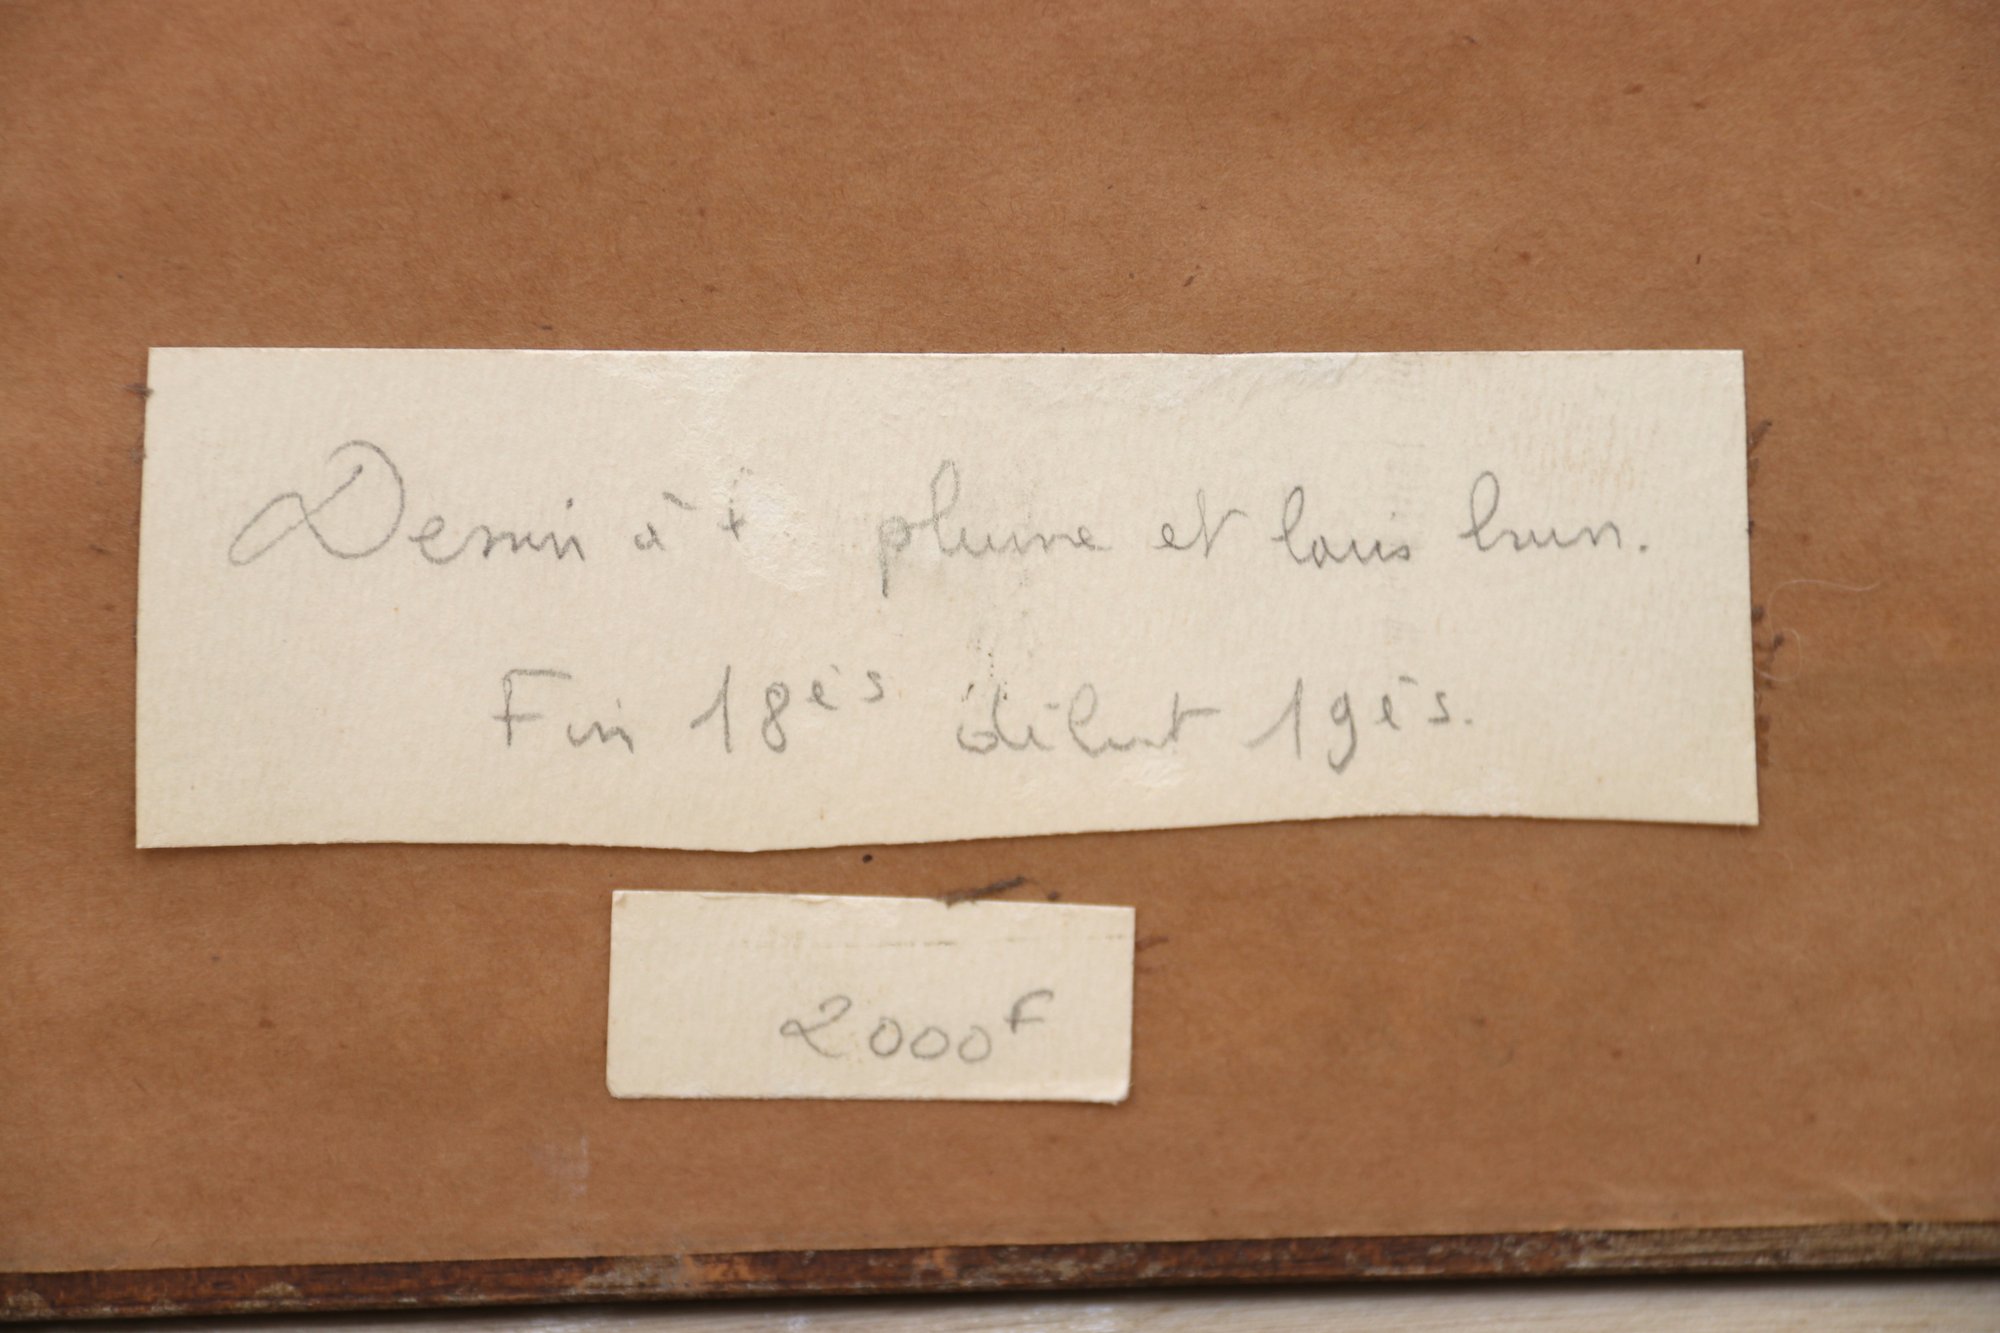 Dessin à plume et lavis brun.
Fin 18ès début 19ès.
2000F